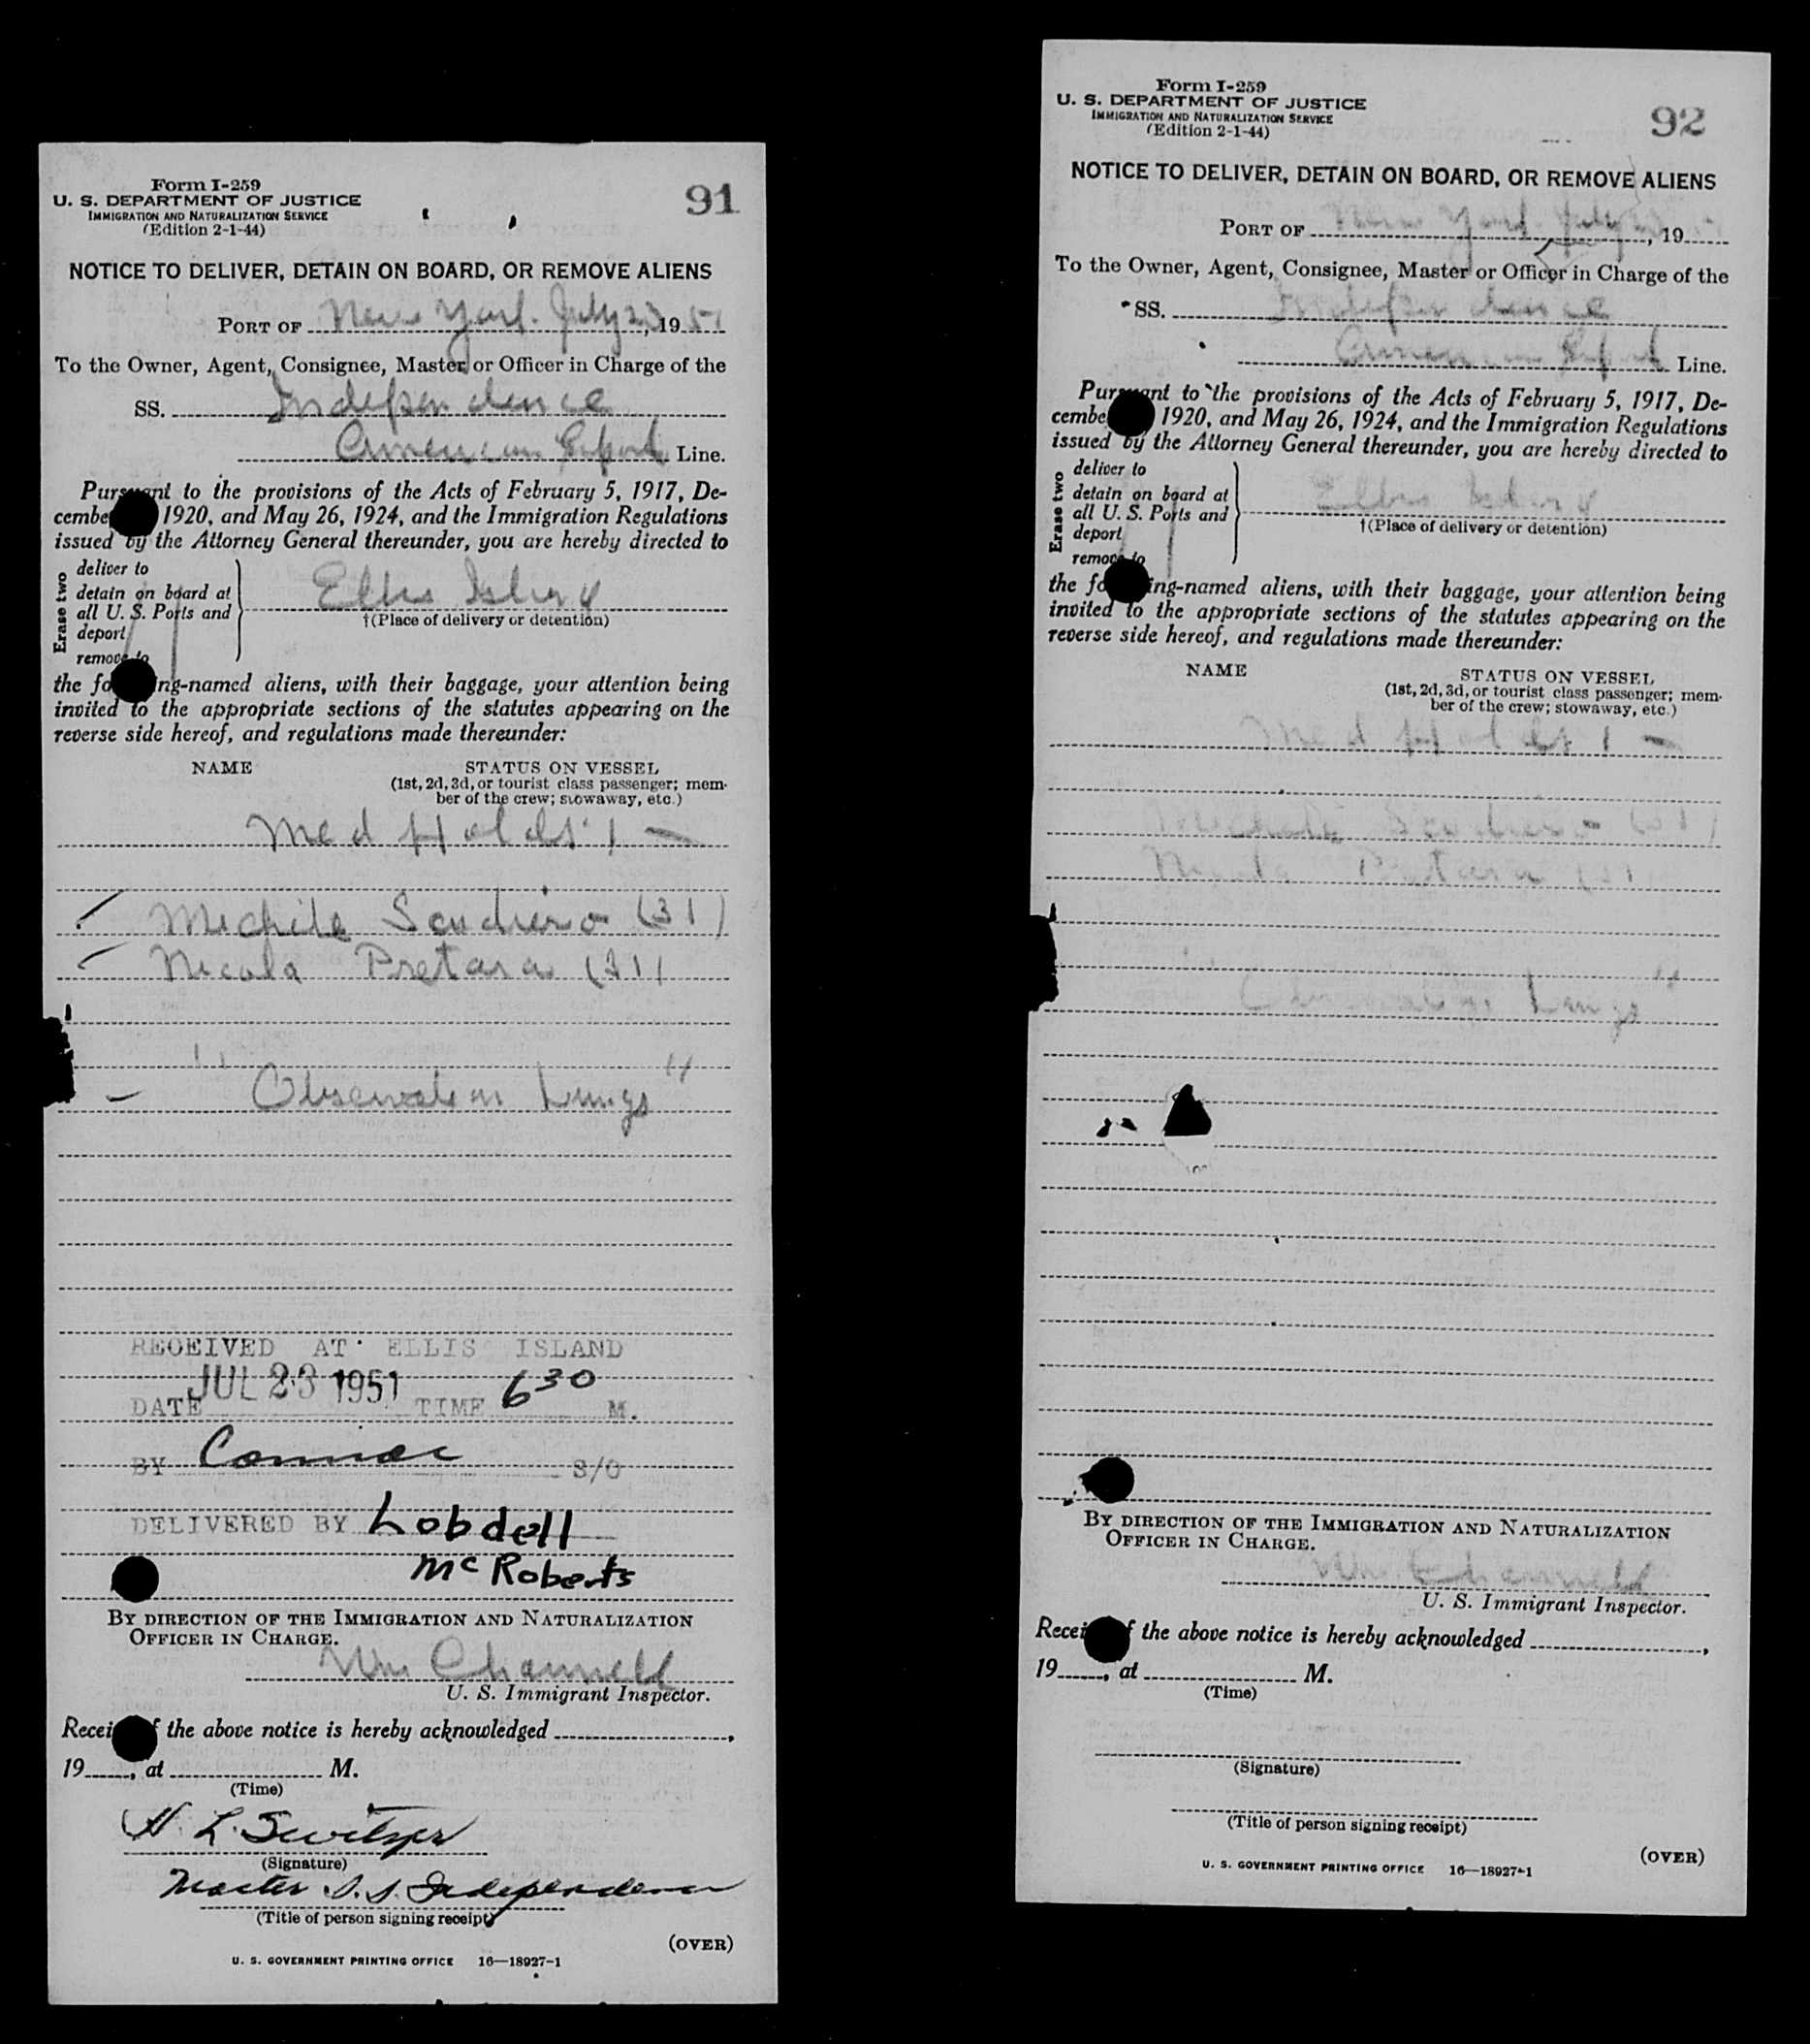 Form I-259
U. S. DEPARTMENT OF JUSTICE
IMMIGRATION AND NATURALIZATION SERVICE
(Edition 2-1-44)
91
NOTICE TO DELIVER, DETAIN ON BOARD, OR REMOVE ALIENS
PORT OF New York. July 23, 1951
To the Owner, Agent, Consignee, Master or Officer in Charge of the
SS. Independence
American Export Line.
Pursuant to the provisions of the Acts of February 5, 1917, De-
cembe 1920, and May 26, 1924, and the Immigration Regulations
issued by the Attorney General thereunder, you are hereby directed to
Erase two
deliver to
detain on board at
all U. S. Ports and
deport
remove to
Ellis Island
†(Place of delivery or detention)
the fo ing-named aliens, with their baggage, your attention being
invited to the appropriate sections of the statutes appearing on the
reverse side hereof, and regulations made thereunder:
NAME STATUS ON VESSEL
(1st, 2d, 3d, or tourist class passenger; mem-
ber of the crew; stowaway, etc.)
Med Hold
Michele Scudiero (31)
Nicola Pretara (31)
"Observation Lungs"
RECEIVED AT ELLIS ISLAND
DATE JUL 23 1951 TIME 6 30 M.
BY S/O
DELIVERED BY Lobdell
McRoberts
BY DIRECTION OF THE IMMIGRATION AND NATURALIZATION
OFFICER IN CHARGE.
Wm Channell
U. S. Immigrant Inspector.
Recei f the above notice is hereby acknowledged
19, at M.
(Time)
H. L. Switzer
(Signature)
Master S.S. Independence
(Title of person signing receipt)
(OVER)
U. S. GOVERNMENT PRINTING OFFICE 16—18927-1
Form I-259
U. S. DEPARTMENT OF JUSTICE
IMMIGRATION AND NATURALIZATION SERVICE
(Edition 2-1-44)
92
NOTICE TO DELIVER, DETAIN ON BOARD, OR REMOVE ALIENS
PORT OF New York. July, 19
To the Owner, Agent, Consignee, Master or Officer in Charge of the
SS. Independence
American Export Line.
Pursuant to the provisions of the Acts of February 5, 1917, De-
cembe 1920, and May 26, 1924, and the Immigration Regulations
issued by the Attorney General thereunder, you are hereby directed to
Erase two
deliver to
detain on board at
all U. S. Ports and
deport
remove to
Ellis Island
†(Place of delivery or detention)
the fo ing-named aliens, with their baggage, your attention being
invited to the appropriate sections of the statutes appearing on the
reverse side hereof, and regulations made thereunder:
NAME STATUS ON VESSEL
(1st, 2d, 3d, or tourist class passenger; mem-
ber of the crew; stowaway, etc.)
Med Hold
Michele Scudiero (31)
Nicola Pretara (31
"Observation Lungs"
BY DIRECTION OF THE IMMIGRATION AND NATURALIZATION
OFFICER IN CHARGE.
Wm Channell
U. S. Immigrant Inspector.
Recei f the above notice is hereby acknowledged
19, at M.
(Time)
(Signature)
(Title of person signing receipt)
(OVER)
U. S. GOVERNMENT PRINTING OFFICE 16—18927-1